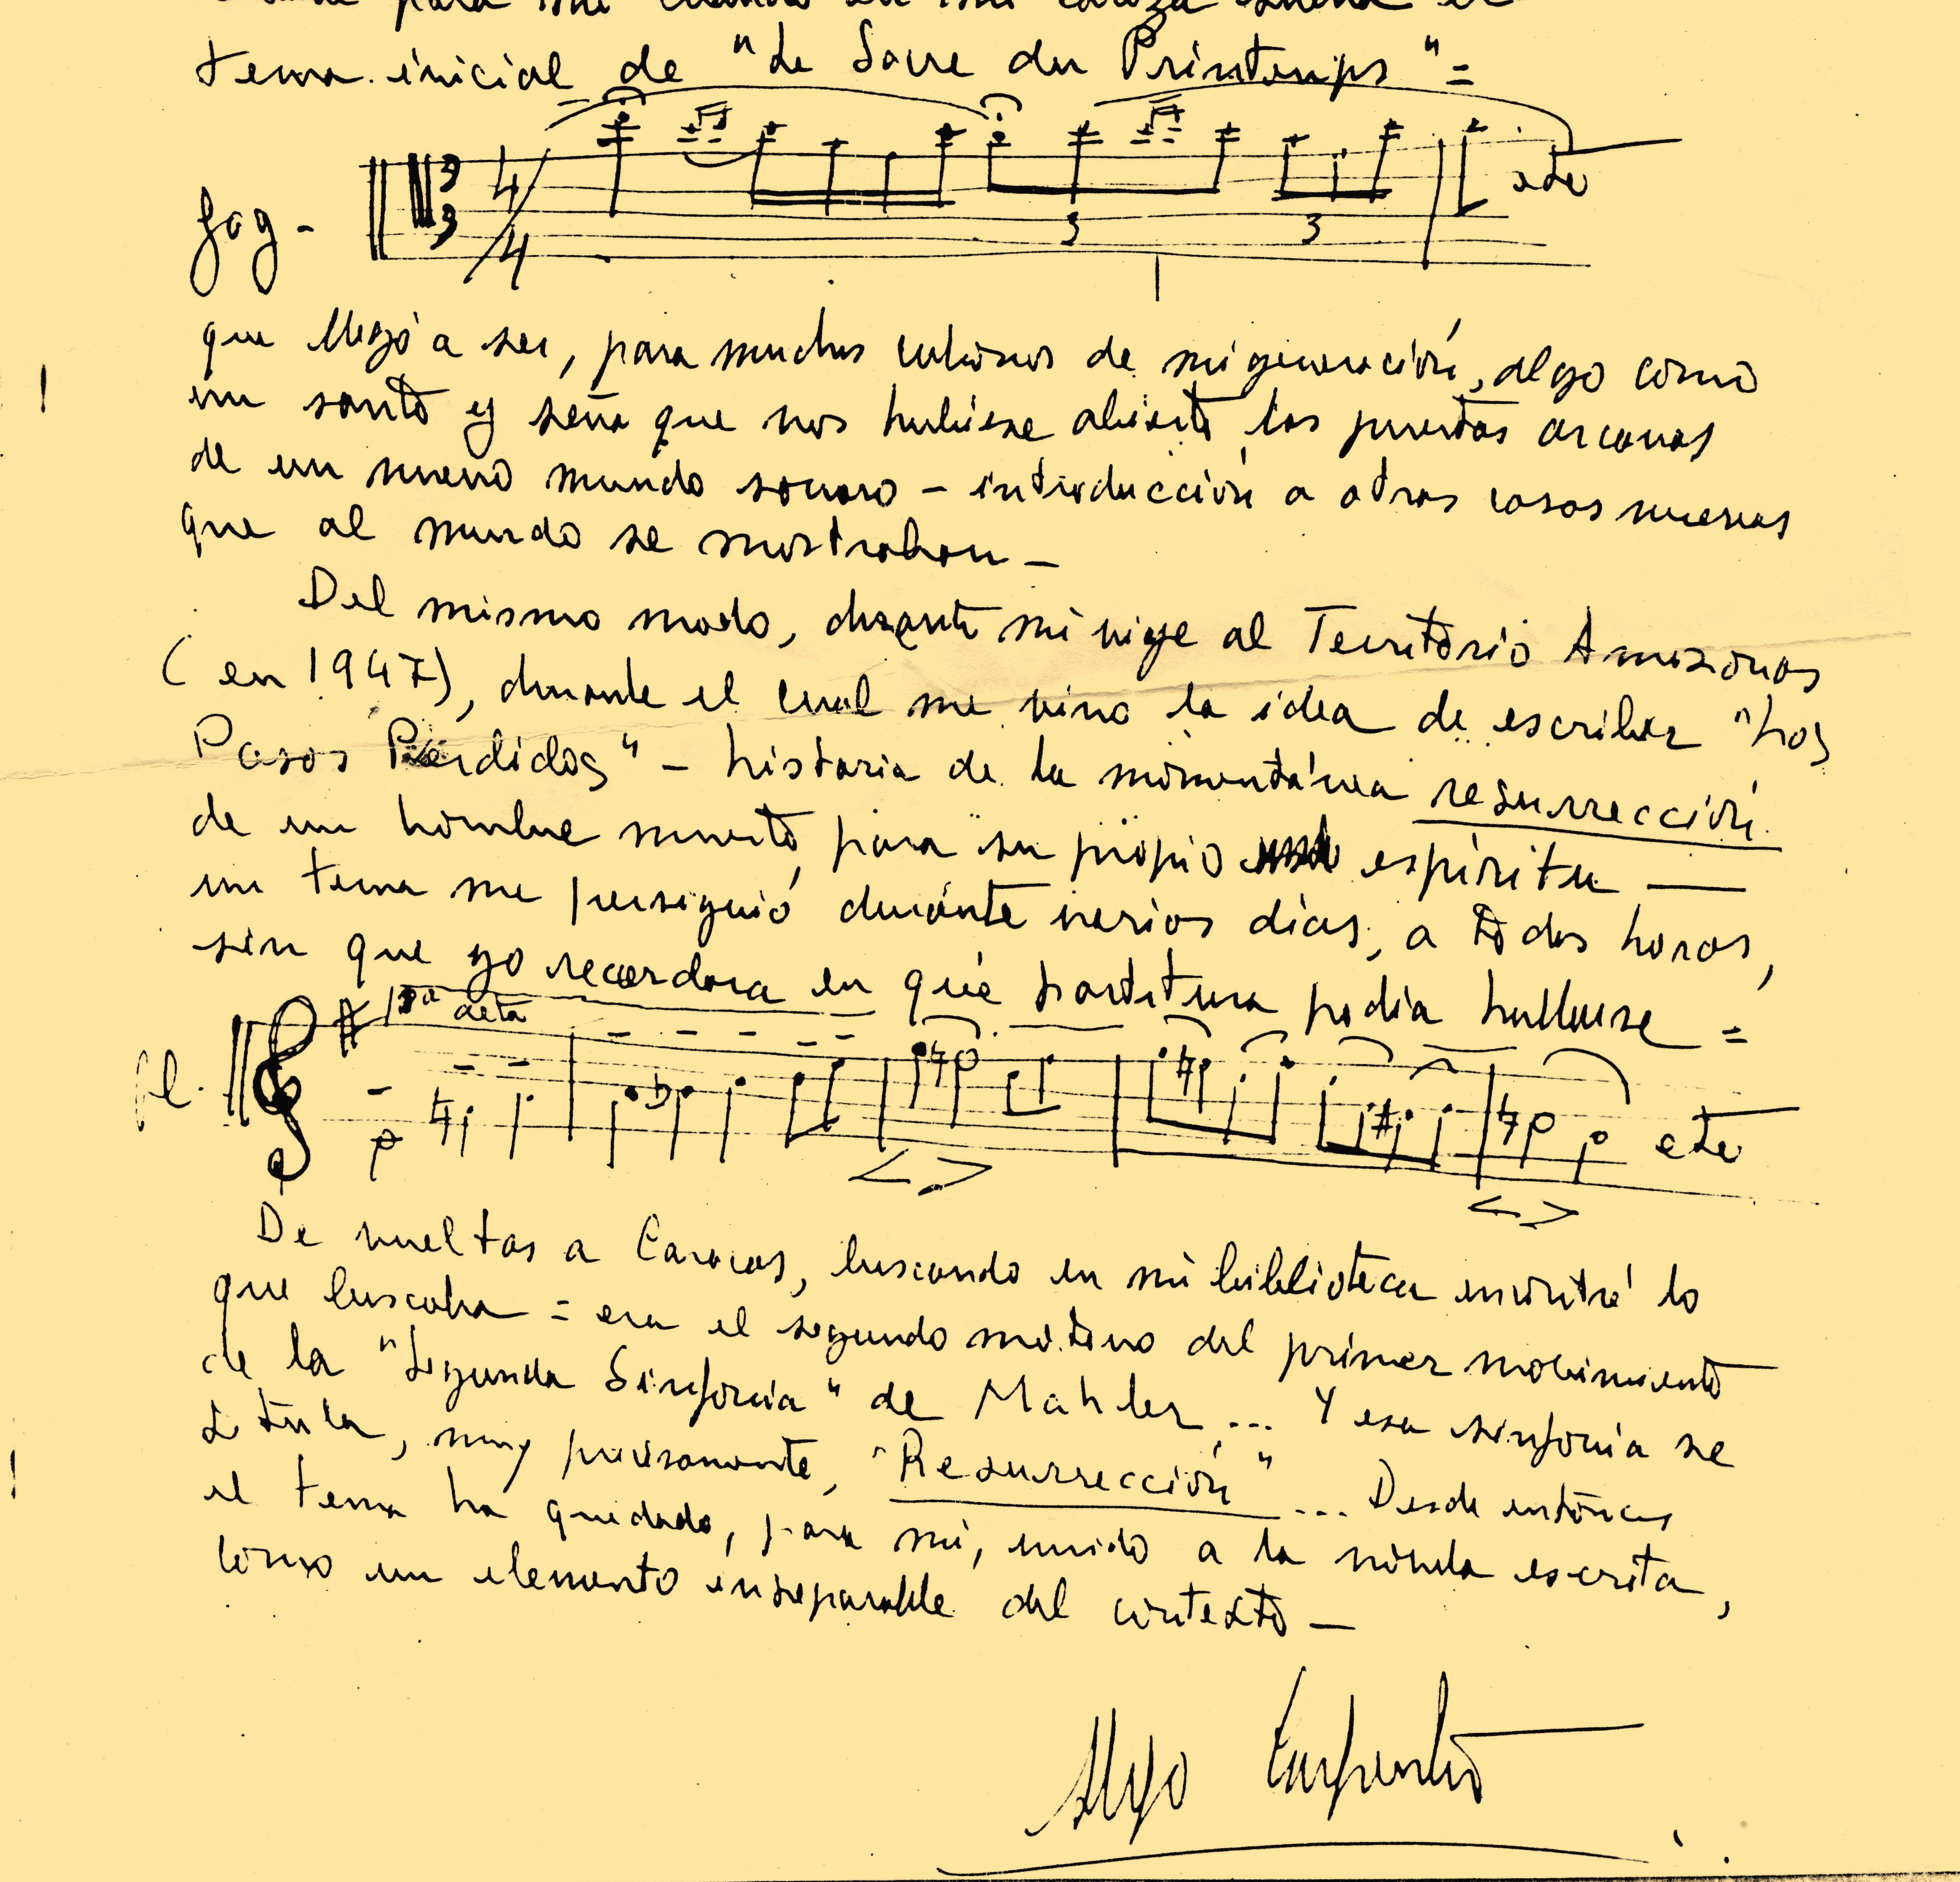 para mí cuando en mi cabeza suena el
tema inicial de "Le Sacre du Printemps" =
fag -
4/4
3 3
etc
que llegó a ser, para muchos cubanos de mi generación, algo como
un santo y seña que nos hubiese abierto las puertas arcanas
de un nuevo mundo sonoro - introducción a otras cosas nuevas
que al mundo se mostraban -
Del mismo modo, durante mi viaje al Territorio Amazonas
(en 1947), durante el cual me vino la idea de escribir "Los
Pasos Perdidos" - historia de la momentánea resurrección
de un hombre muerto para su propio espíritu —
un tema me persiguió durante varios días, a todas horas,
sin que yo recordara en qué partitura podía hallarse =
8va alta
fl.
etc
De vueltas a Caracas, buscando en mi biblioteca encontré lo
que buscaba = era el segundo motivo del primer movimiento
de la "Segunda Sinfonía" de Mahler... Y esa sinfonía se
titula, muy precisamente, "Resurrección"... Desde entonces
el tema ha quedado, para mí, unido a la novela escrita,
como un elemento inseparable del contexto -
Alejo Carpentier